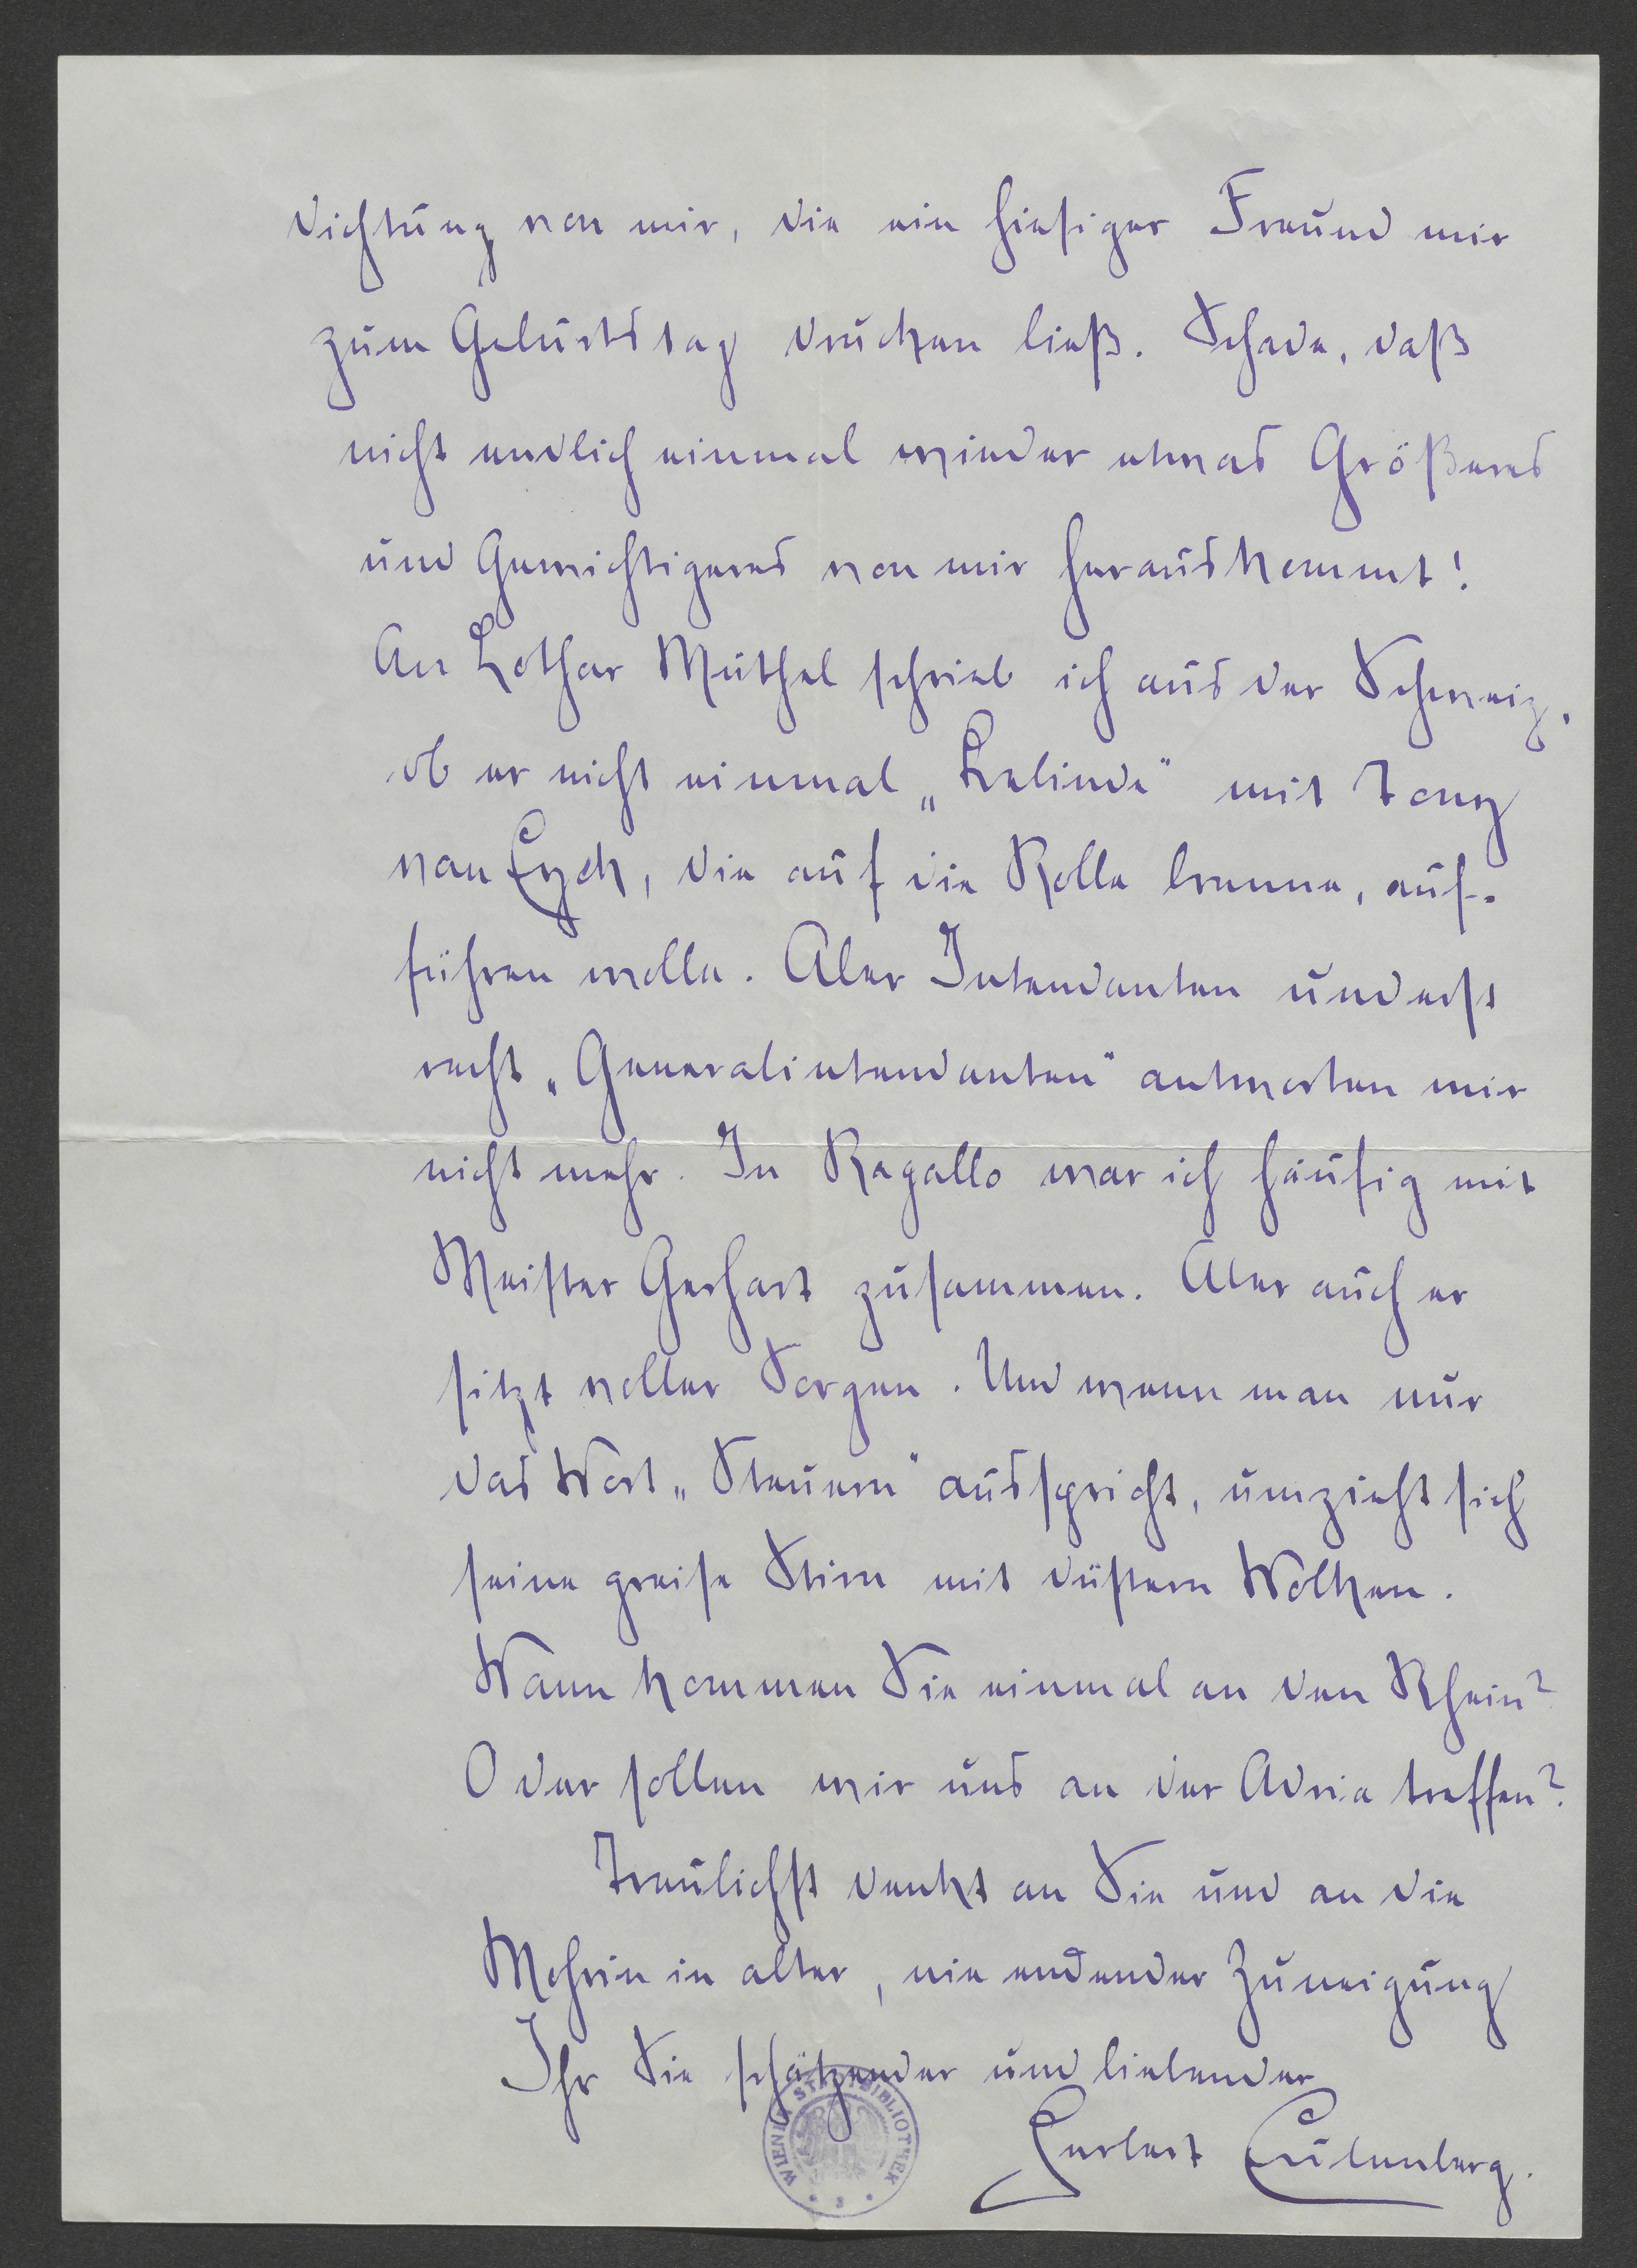 dichtung von mir, die ein hiesiger Freund mir
zum Geburtstag drucken ließ. Schade, daß
nicht endlich einmal wieder etwas Größeres
und Gewichtigeres von mir herauskommt!
An Lothar Müthel schrieb ich aus der Schweiz,
ob er nicht einmal „Belinde" mit Tony
van Eyck, die auf die Rolle brenne, auf-
führen wolle. Aber Intendanten und erst
recht „Generalintendanten" antworten mir
nicht mehr. In Rapallo war ich häufig mit
Meister Gerhart zusammen. Aber auch er
sitzt voller Sorgen. Und wenn man nur
das Wort „Steuern" ausspricht, umzieht sich
seine greise Stirn mit düstern Wolken.
Wann kommen Sie einmal an den Rhein?
Oder sollen wir uns an der Adria treffen?
Treulichst denkt an Sie und an die
Mohrin in alter, nie endender Zuneigung
Ihr Sie schätzender und liebender
Herbert Eulenberg.
WIENER STADTBIBLIOTHEK